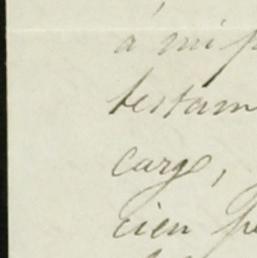 á mi p
testam
cargo,
cien pe